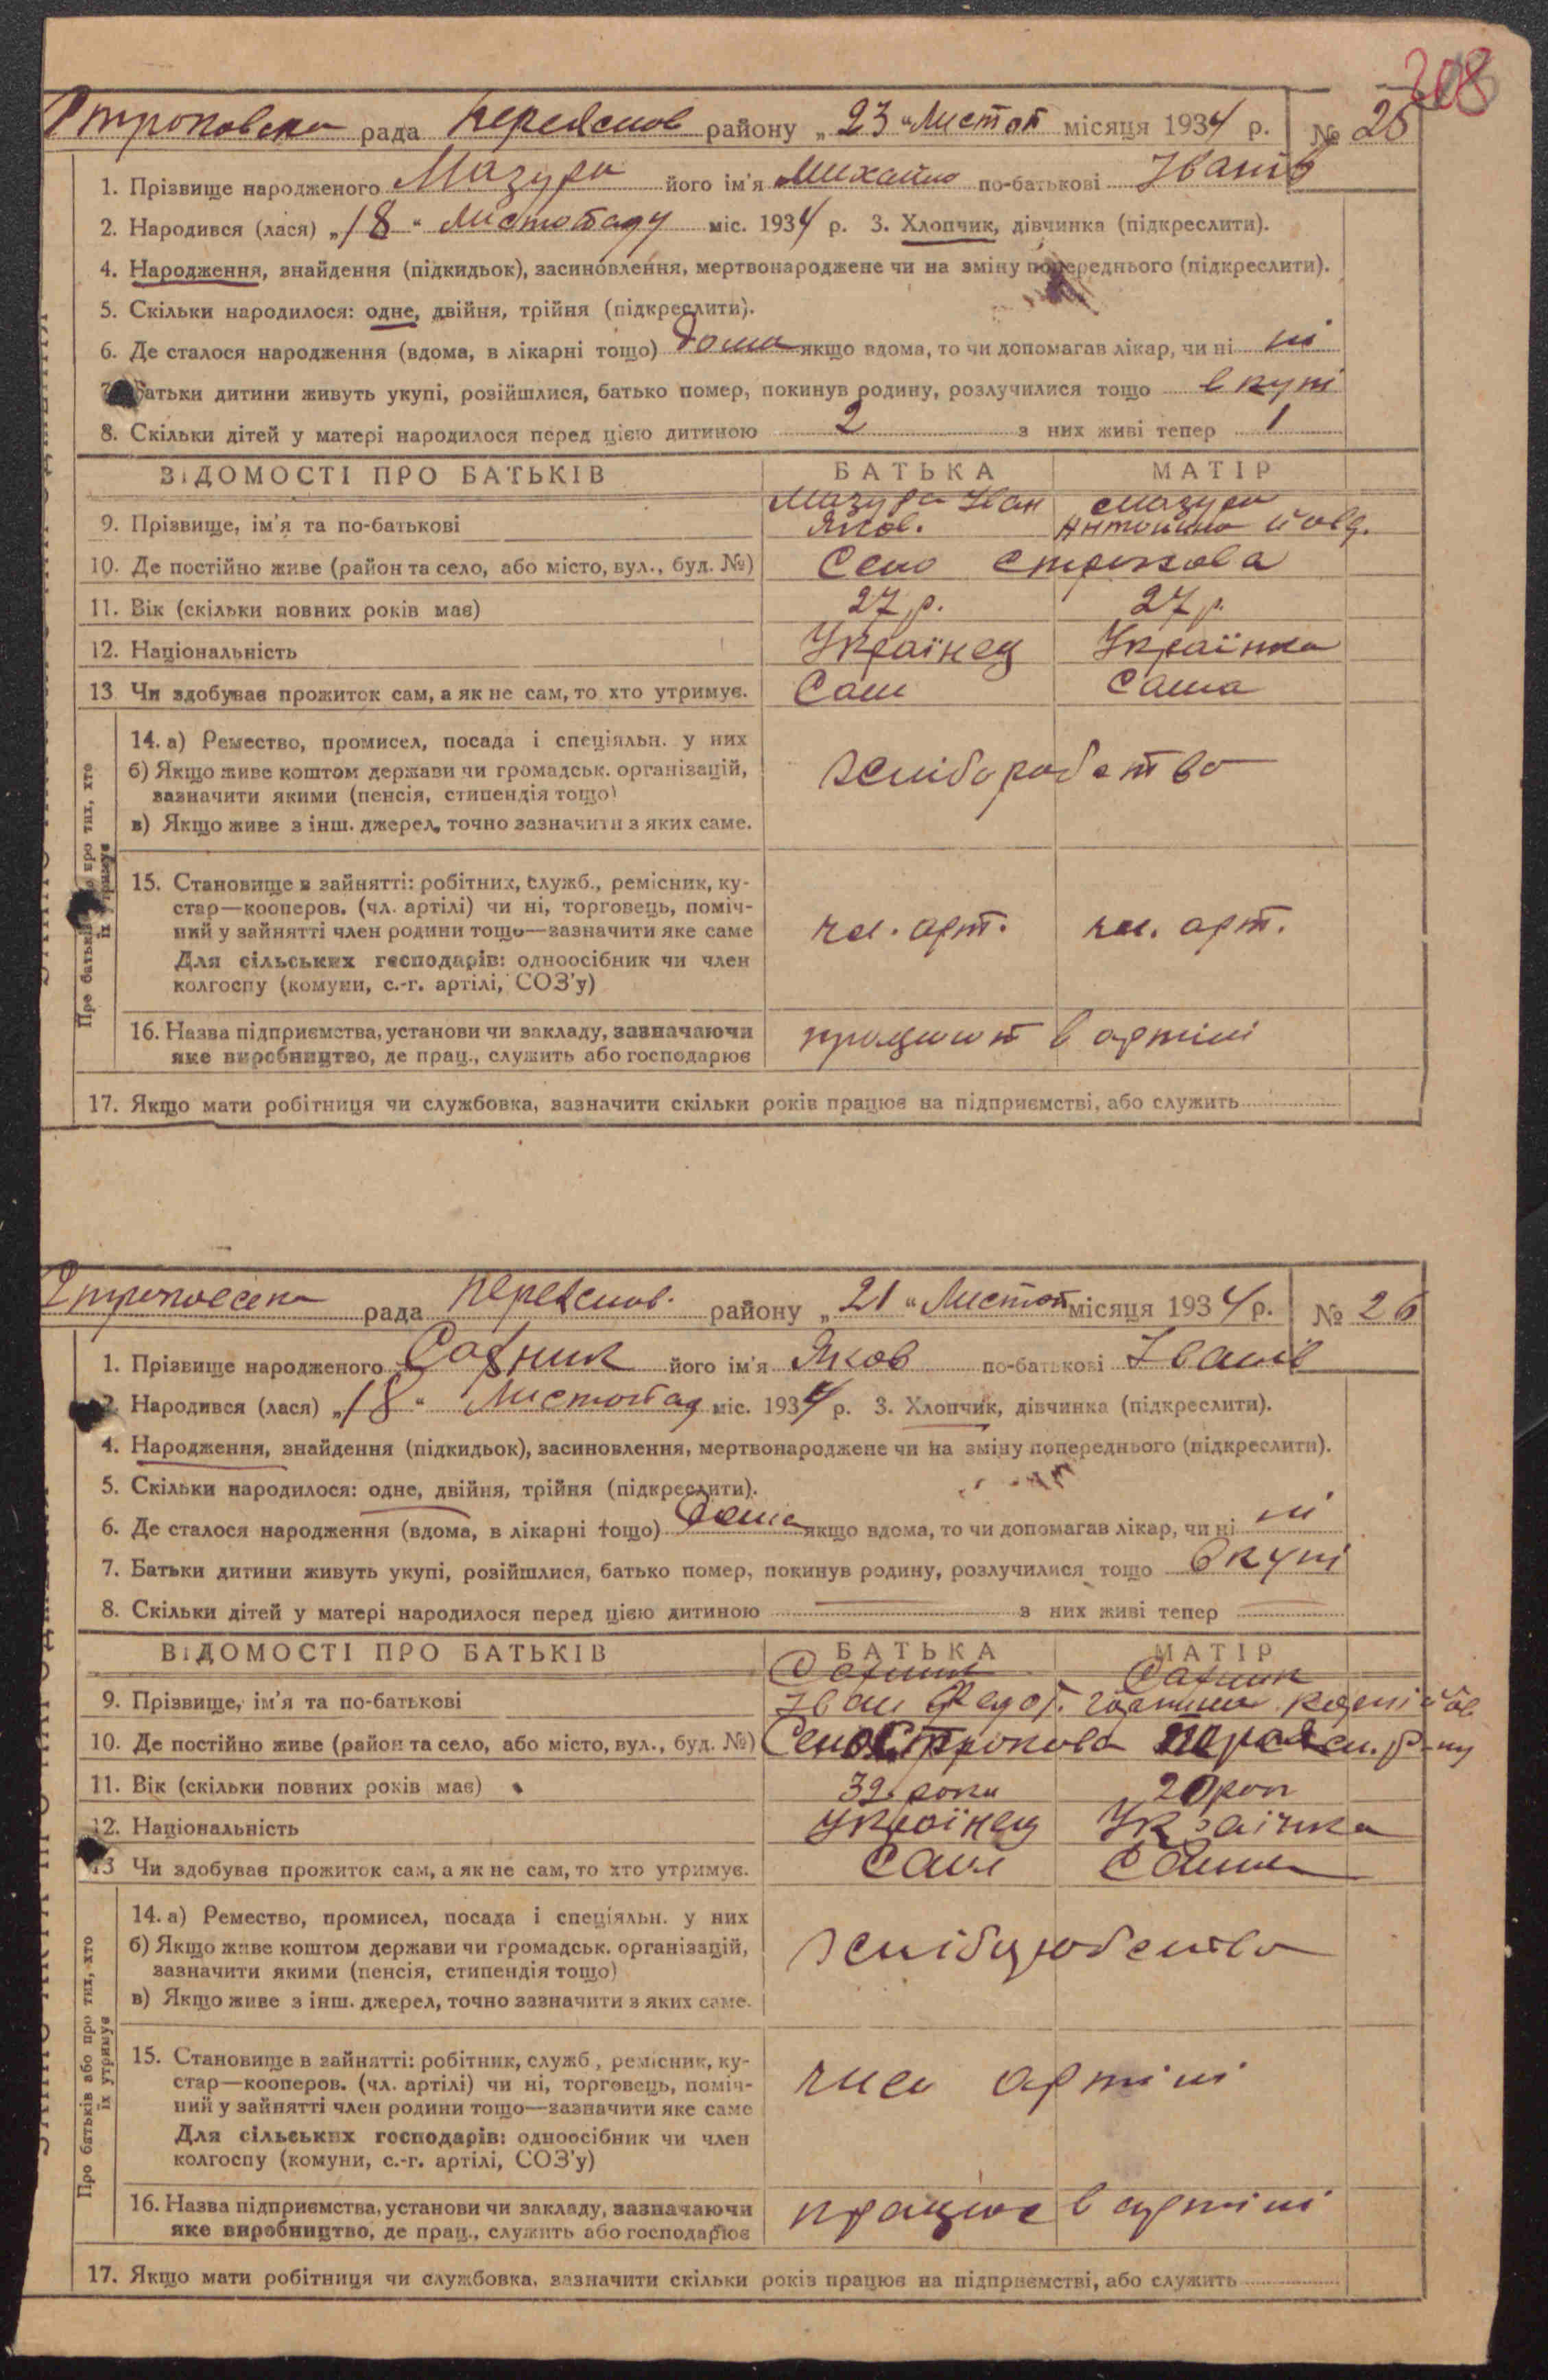 208
Строковська рада Переяслов району „23“ Листоп місяця 1934 р. № 25
1. Прізвище народженого Мазура його ім'я Михайло по-батькові Іванів
2. Народився (лася) „18“ Листопаду міс. 1934 р. 3. Хлопчик, дівчинка (підкреслити).
4. Народження, знайдення (підкидьок), засиновлення, мертвонароджене чи на зміну попереднього (підкреслити).
5. Скільки народилося: одне, двійня, трійня (підкреслити).
6. Де сталося народження (вдома, в лікарні тощо) дома якщо вдома, то чи допомагав лікар, чи ні ні
7. Батьки дитини живуть укупі, розійшлися, батько помер, покинув родину, розлучилися тощо вкупі
8. Скільки дітей у матері народилося перед цією дитиною 2 з них живі тепер 1
ВІДОМОСТІ ПРО БАТЬКІВ БАТЬКА МАТІР
9. Прізвище, ім'я та по-батькові Мазура Іван Яков. Мазура Антонина Йовд.
10. Де постійно живе (район та село, або місто, вул., буд. №) Село Строкова
11. Вік (скільки повних років має) 27 р. 27 р.
12. Національність Українец Українка
13 Чи здобував прожиток сам, а як не сам, то хто утримує. Сам Сама
Про батьків або про тих, хто їх утримує
14. а) Ремество, промисел, посада і спеціяльн. у них
б) Якщо живе коштом держави чи громадськ. організацій,
зазначити якими (пенсія, стипендія тощо)
хліборобство
в) Якщо живе з інш. джерел, точно зазначити з яких саме.
15. Становище в зайнятті: робітник, служб., ремісник, ку-
стар—кооперов. (чл. артілі) чи ні, торговець, поміч-
ний у зайнятті член родини тощо—зазначити яке саме
чл. арт. чл. арт.
Для сільських господарів: одноосібник чи член
колгоспу (комуни, с.-г. артілі, СОЗ'у)
16. Назва підприємства, установи чи закладу, зазначаючи
яке виробництво, де прац., служить або господарює
працюют в артілі
17. Якщо мати робітниця чи службовка, зазначити скільки років працює на підприємстві, або служить
Строковська рада Переяслов. району „21“ Листоп місяця 1934 р. № 26
1. Прізвище народженого його ім'я Яков по-батькові Іванів
2. Народився (лася) „18“ Листопад міс. 1934 р. 3. Хлопчик, дівчинка (підкреслити).
4. Народження, знайдення (підкидьок), засиновлення, мертвонароджене чи на зміну попереднього (підкреслити).
5. Скільки народилося: одне, двійня, трійня (підкреслити).
6. Де сталося народження (вдома, в лікарні тощо) дома якщо вдома, то чи допомагав лікар, чи ні ні
7. Батьки дитини живуть укупі, розійшлися, батько помер, покинув родину, розлучилися тощо вкупі
8. Скільки дітей у матері народилося перед цією дитиною — з них живі тепер —
ВІДОМОСТІ ПРО БАТЬКІВ БАТЬКА МАТІР
9. Прізвище, ім'я та по-батькові Іван Федот.
10. Де постійно живе (район та село, або місто, вул., буд. №) Село Строкова Переясл. р-ну
11. Вік (скільки повних років має) 32 роки 20 рок
12. Національність Українец Українка
13 Чи здобував прожиток сам, а як не сам, то хто утримує. Сам Сама
Про батьків або про тих, хто їх утримує
14. а) Ремество, промисел, посада і спеціяльн. у них
б) Якщо живе коштом держави чи громадськ. організацій,
зазначити якими (пенсія, стипендія тощо)
хліборобство
в) Якщо живе з інш. джерел, точно зазначити з яких саме.
15. Становище в зайнятті: робітник, служб., ремісник, ку-
стар—кооперов. (чл. артілі) чи ні, торговець, поміч-
ний у зайнятті член родини тощо—зазначити яке саме
член артілі
Для сільських господарів: одноосібник чи член
колгоспу (комуни, с.-г. артілі, СОЗ'у)
16. Назва підприємства, установи чи закладу, зазначаючи
яке виробництво, де прац., служить або господарює
працює в артілі
17. Якщо мати робітниця чи службовка, зазначити скільки років працює на підприємстві, або служить